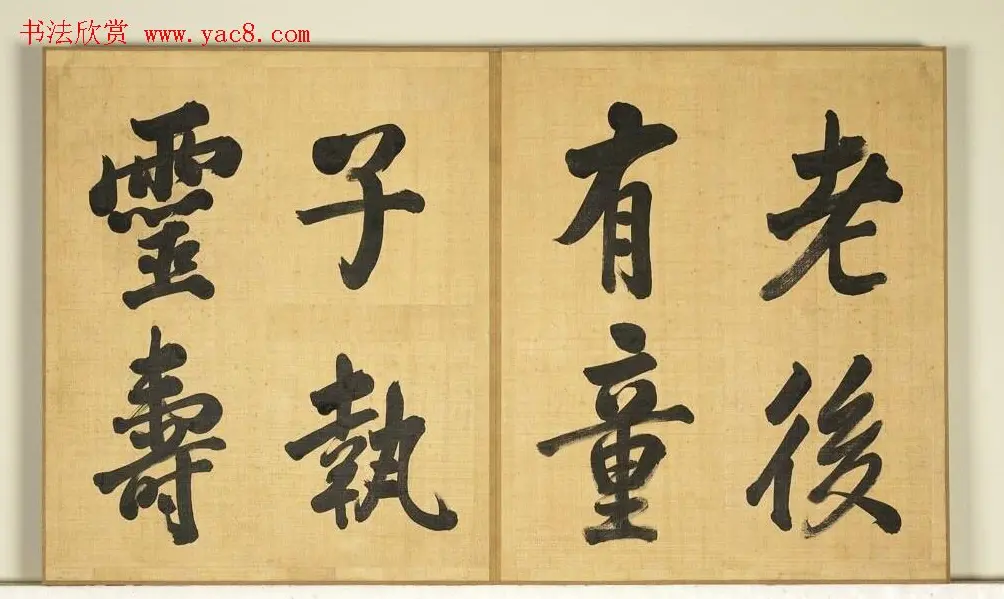 书法欣赏 www.yac8.com
老後
有童
子執
靈壽